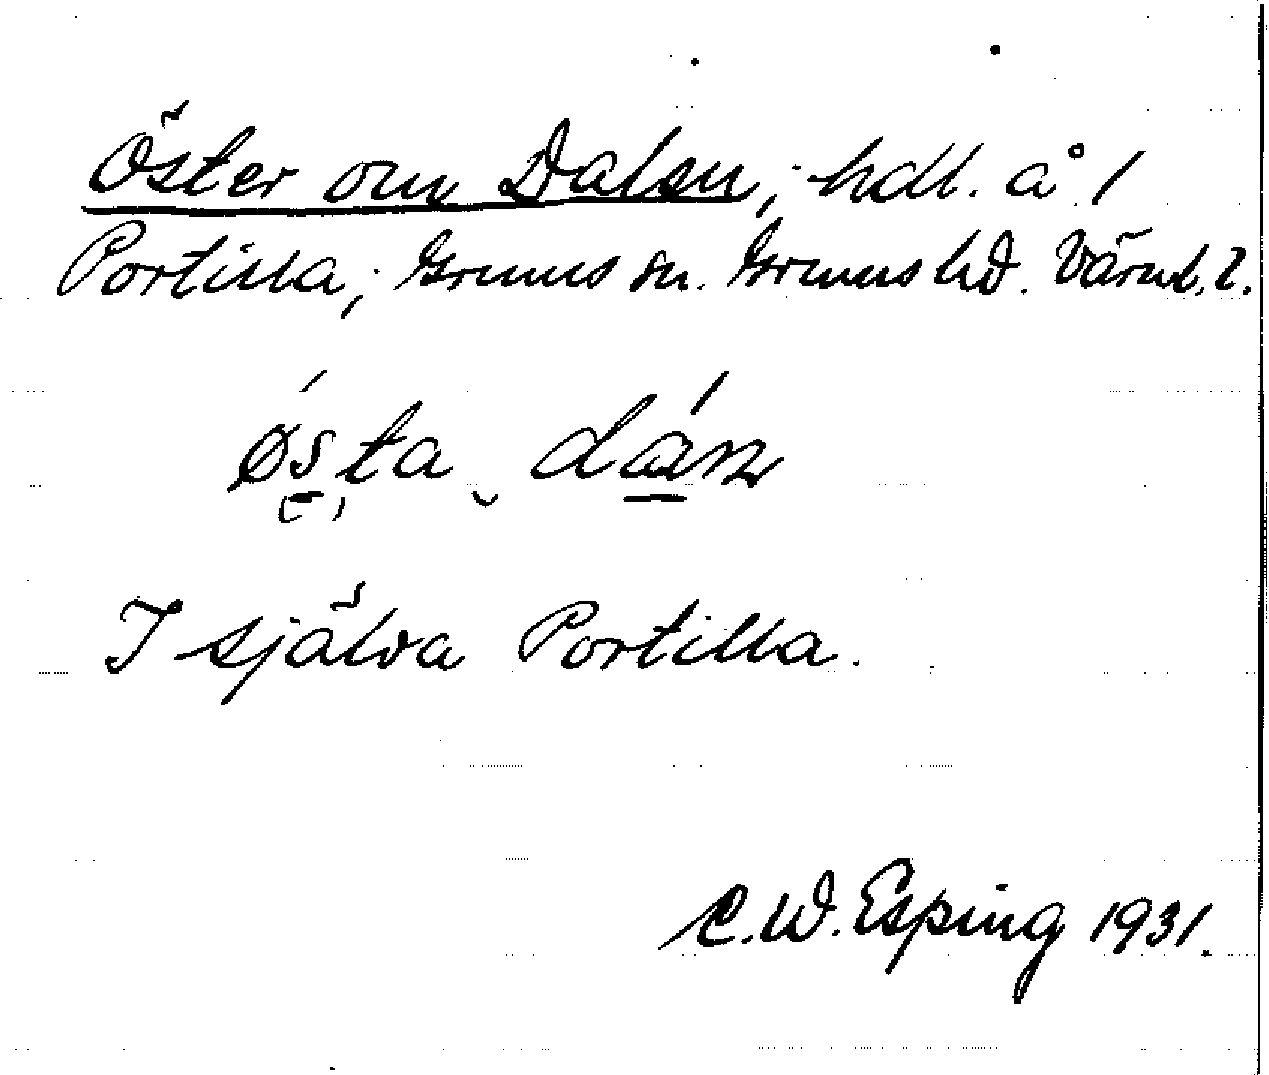 Öster om Dalen, hdl. å 1
Portilla, Grums sn. Grums hd. Värml. l.
østa dán
I själva Portilla.
C.W. Esping 1931.